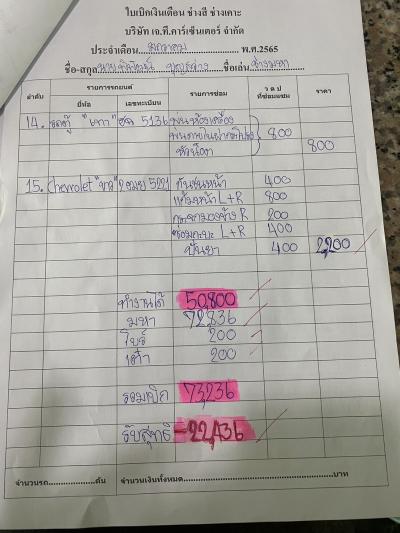 ใบเบิกเงินเดือน ช่างสี ช่างเคาะ
บริษัท เจ.ที.คาร์เซ็นเตอร์ จำกัด
ประจำเดือน มกราคม พ.ศ.2565
ชื่อ-สกุล ชื่อเล่น ช่างมหา
ลำดับ รายการรถยนต์ รายการซ่อม ว ด ป ที่ซ่อมแซม ราคา
ยี่ห้อ เลขทะเบียน
14. รถตู้ "เทา" ฮฉ 5136 พ่นห้องเครื่อง
800
หัวน๊อต 800
15. Chevrolet 5221 กันชนหน้า 400
แก้มหน้า L+R 800
R 200
L+R 400
400 2,200
ทำงานได้ 50,800
มหา 72,836
โบร์ 200
เต๋า 200
รวมเบิก 73,236
รับสุทธิ -22,436
จำนวนรถ....................คัน จำนวนเงินทั้งหมด....................บาท